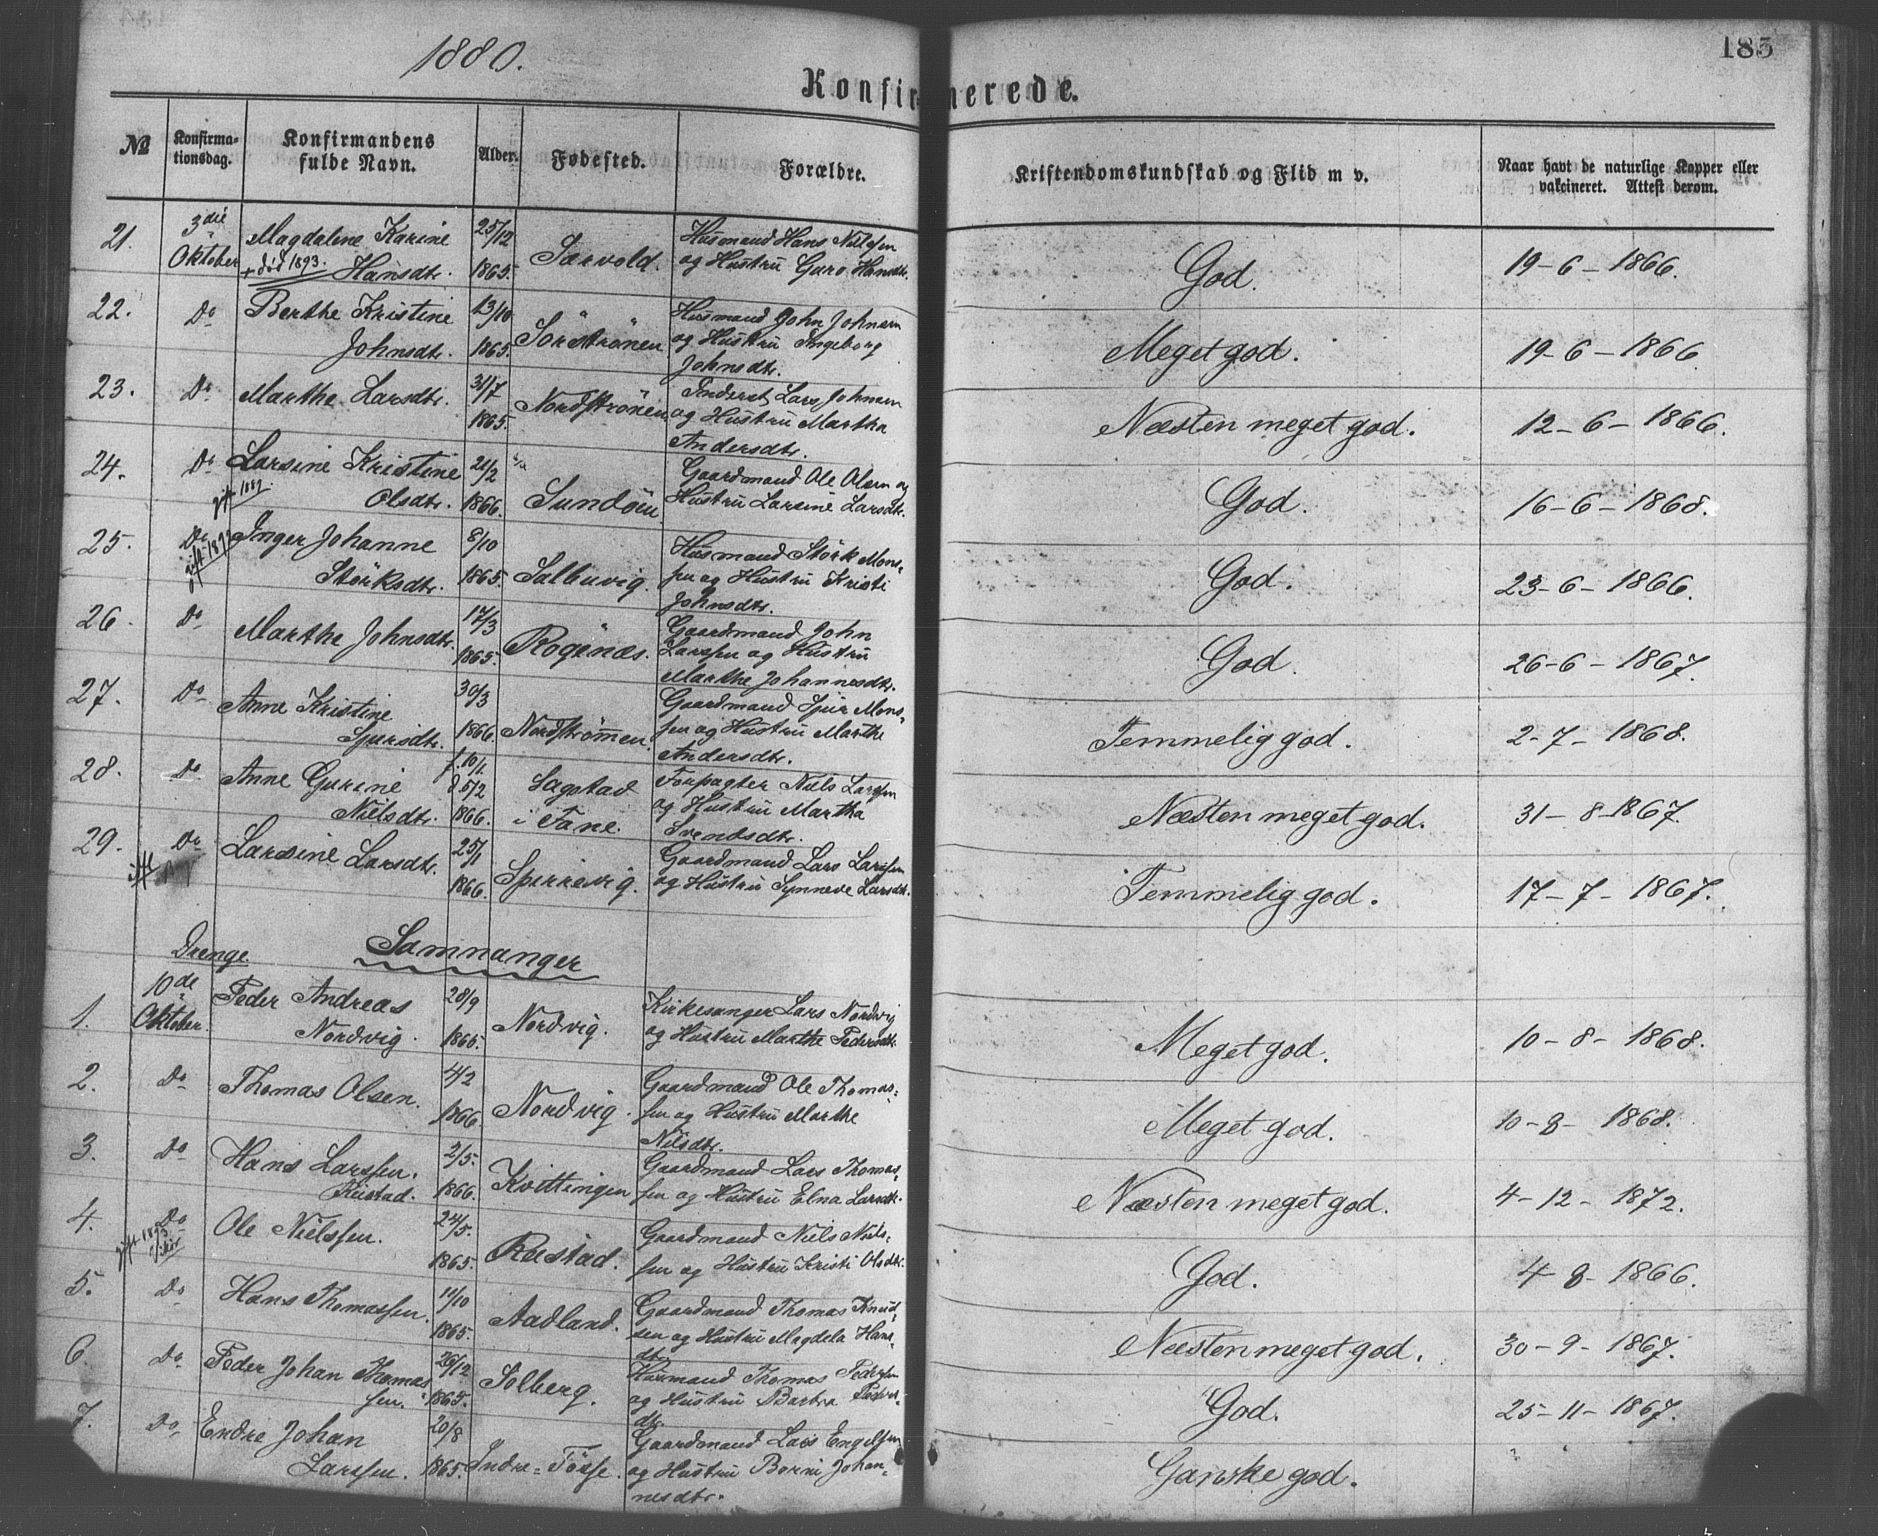 1880.
185
Konfirmerede.
№ Konfirmationsdag. Konfirmandens fulde Navn. Alder. Fødested. Forældre. Kristendomskundskab og Flid m v. Naar havt de naturlige Kopper eller vakcineret. Attest derom.
21. 3die Oktober Magdalene Karine Hansdtr. + død 1893. 25/12 1865. Særvold. Husmand Hans Nielsen og Hustru Guro Hansdtr. God. 19-6-1866.
22. Do Berthe Kristine Johnsdtr. 13/10 1865. Sörströnen Husmand John Johnsen og Hustru Ingeborg Johnsdtr. Meget god. 19-6-1866.
23. Do Marthe Larsdtr. 31/7 1865. Nordströnen Inderst Lars Johnsen og Hustru Martha Andersdtr. Næsten meget god. 12-6-1866.
24. Do Larsine Kristine Olsdtr. 21/2 1866. Sundöen. Gaardmand Ole Olsen og Hustru Larsine Larsdtr. God. 16-6-1868.
25. Do Inger Johanne Störksdtr. 8/10 1865. Salbuvig. Husmand Störk Monssen og Hustru Kristi Johnsdtr. God. 23-6-1866.
26. Do Marthe Johnsdtr. 17/3 1865. Rögenæs. Gaardmand John Larssen og Hustru Marthe Johannesdtr. God. 26-6-1867.
27. Do Anne Kristine Sjursdtr. 30/3 1866. Nordströmen. Gaardmand Sjur Monssen og Hustru Marthe Andersdtr. Temmelig god. 2-7-1868.
28. Do Anne Gurine Nielsdtr. f. 10/1 d 5/2 1866. Sagstad i Fane. Forpagter Niels Larssen og Hustru Martha Svendsdtr. Næsten meget god. 31-8-1867.
29. Do Larsine Larsdtr. 25/1 1866. Spirrevig. Gaardmand Lars Larssen og Hustru Synneve Larsdtr. Temmelig god. 17-7-1867.
Drenge. Samnanger
1. 10de Oktober. Peder Andreas Nordvig. 28/9 1865. Nordvig. Kirkesanger Lars Nordvig og Hustru Marthe Pedersdtr. Meget god. 10-8-1868.
2. Do Thomas Olsen. 4/2 1866. Nordvig. Gaardmand Ole Thomassen og Hustru Marthe Nilsdtr. Meget god. 10-8-1868.
3. Do Hans Larssen. 2/5. 1866. Kvittingen Gaardmand Lars Thomassen og Hustru Elna Larsdtr. Næsten meget god. 4-12-1872.
4. Do Ole Nielssen. 24/5. 1865. Reistad. Gaardmand Niels Nielssen og Hustru Kristi Olsdtr. God. 4-8-1866.
5. Do Hans Thomassen. 11/10 1865. Aadland. Gaardmand Thomas Knudsen og Hustru Magdela Hansdtr. Næsten meget god. 30-9-1867.
6. Do Peder Johan Thomassen. 26/12 1865. Solberg. Husmand Thomas Pedersen og Hustru Barbra Pedersdtr. God. 25-11-1867.
7. Do Endre Johan Larssen. 20/8 1865. Indre-Tösse. Gaardmand Lars Engelsen og Hustru Johannesdtr. Ganske god.